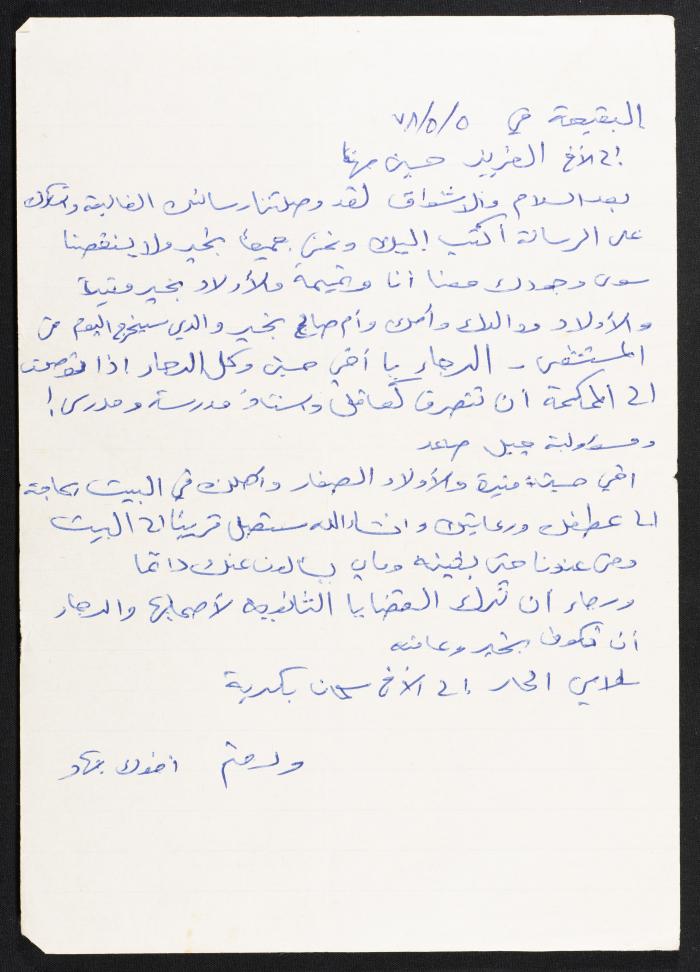 البقيعة في ٧٨/٥/٥
إلى الأخ العزيز حسين مهنا
بعد السلام والاشواق لقد وصلتنا رسائلك الغالية ونشكرك
على الرسالة أكتب إليك ونحن جميعاً بخير ولا ينقصنا
سوى وجودك معنا أنا و والأولاد بخير
والأولاد ووالدك وأمك وأم صالح بخير والدي سيخرج اليوم من
المستشفى - الرجاء يا أخي حسين وكل الرجاء إذا توصلت
الى المحكمة أن تتصرف كعاقل وأستاذ مدرسة ومدرس!
ومسؤولية جيل صاعد
اخي حسين منيرة والأولاد الصغار وأهلك في البيت بحاجة
الى عطفك ورعايتك وانشاءالله ستصل قريباً الى البيت
ومن عندنا حتى يسألون عنك دائما
ورجاء أن تترك القضايا الثانوية لأصحابها والرجاء
أن تكون بخير وعافيه
سلامي الحار إلى الأخ
ودمتم اخوك جهاد